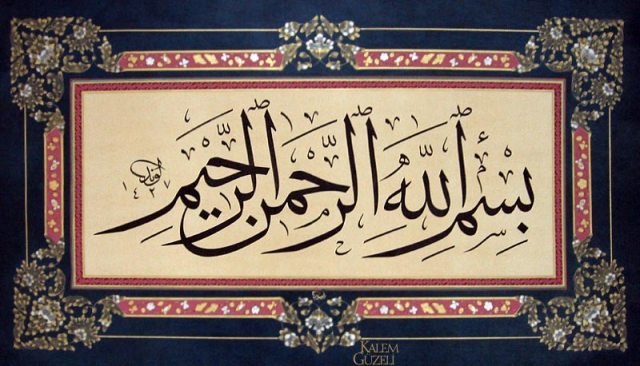 بِسْمِ اللّٰهِ الرَّحْمٰنِ الرَّحِيمِ
KALEM
GÜZELİ